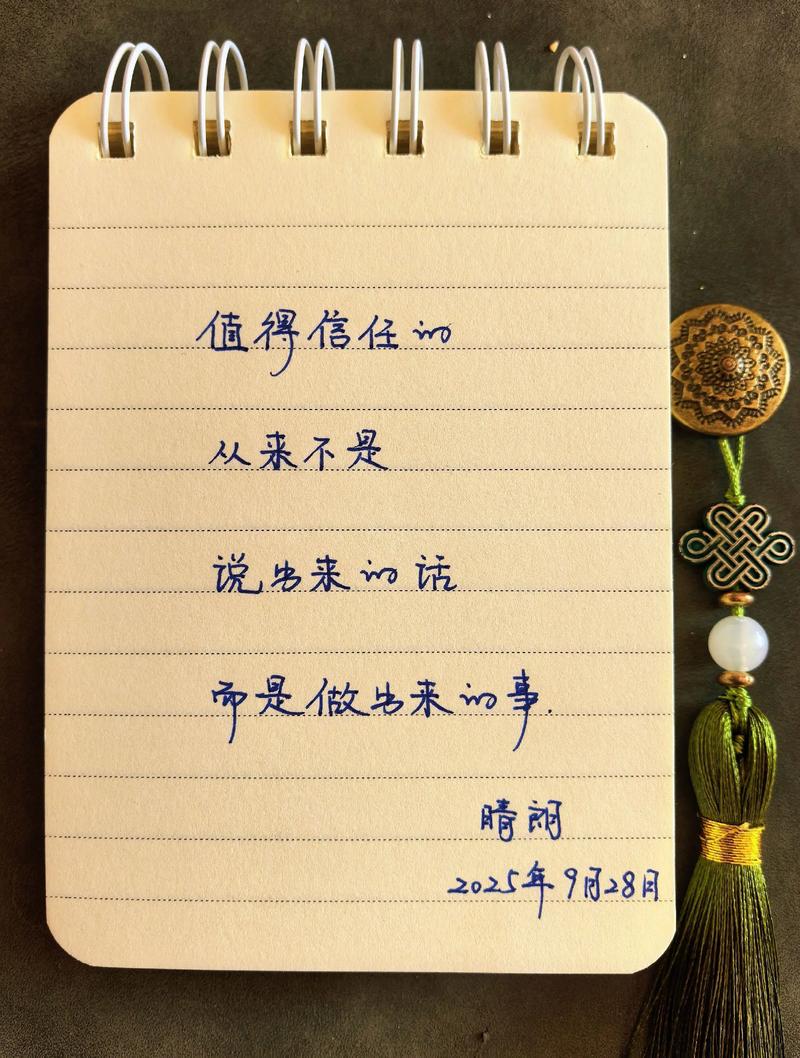 值得信任的
从来不是
说出来的话
而是做出来的事.
晴朗
2025年9月28日